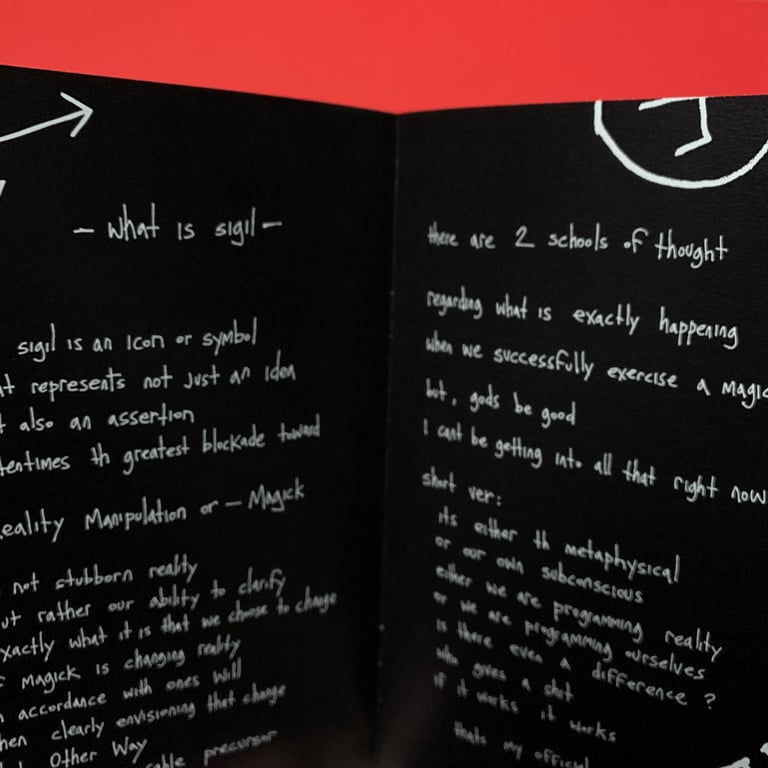 - what is sigil -
sigil is an icon or symbol
represents not just an idea
also an assertion
th greatest blockade toward
Manipulation or - Magick
not stubborn reality
rather our ability to clarify
what it is that we choose to change
Magick is changing reality
accordance with ones will
clearly envisioning that change
Other Way
precursor
there are 2 schools of thought
regarding what is exactly happening
when we successfully exercise a
but, gods be good
I cant be getting into all that right now
short ver:
its either th metaphysical
or our own subconscious
either we are programming reality
or we are programming ourselves
is there even a difference ?
who gives a shit
if it works it works
thats my